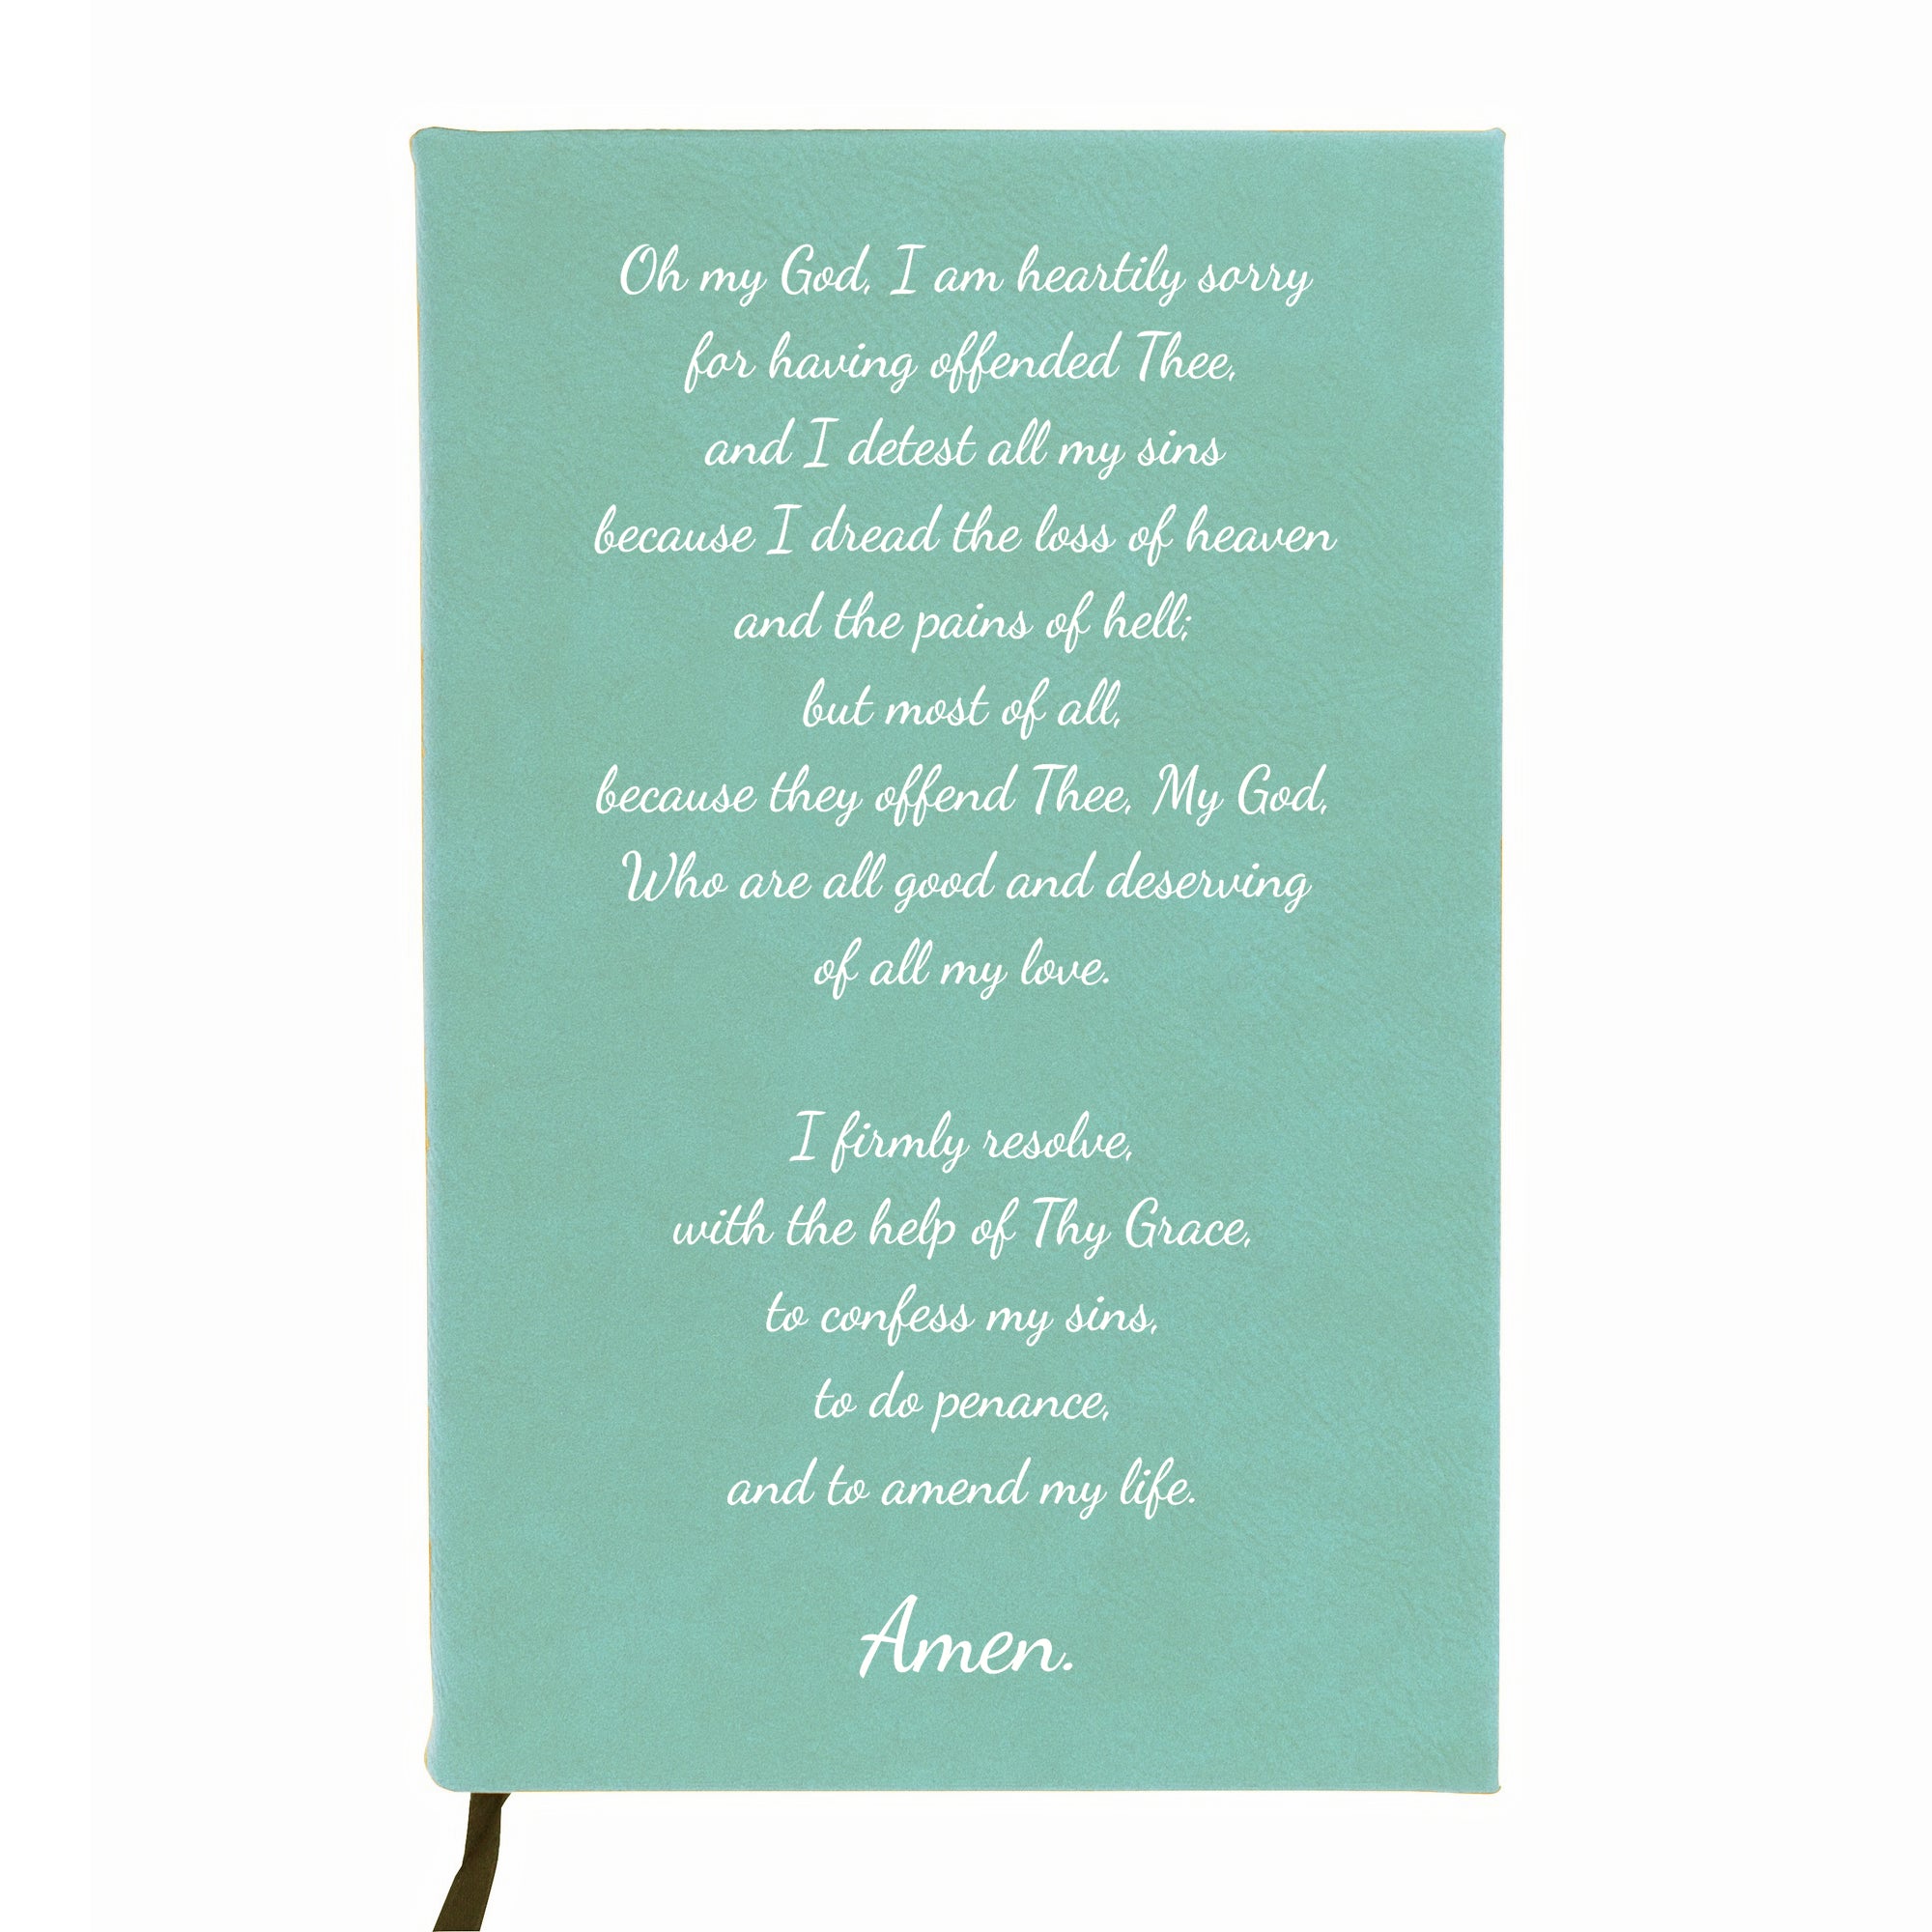 Oh my God, I am heartily sorry
for having offended Thee,
and I detest all my sins
because I dread the loss of heaven
and the pains of hell;
but most of all,
because they offend Thee, My God,
Who are all good and deserving
of all my love.
I firmly resolve,
with the help of Thy Grace,
to confess my sins,
to do penance,
and to amend my life.
Amen.